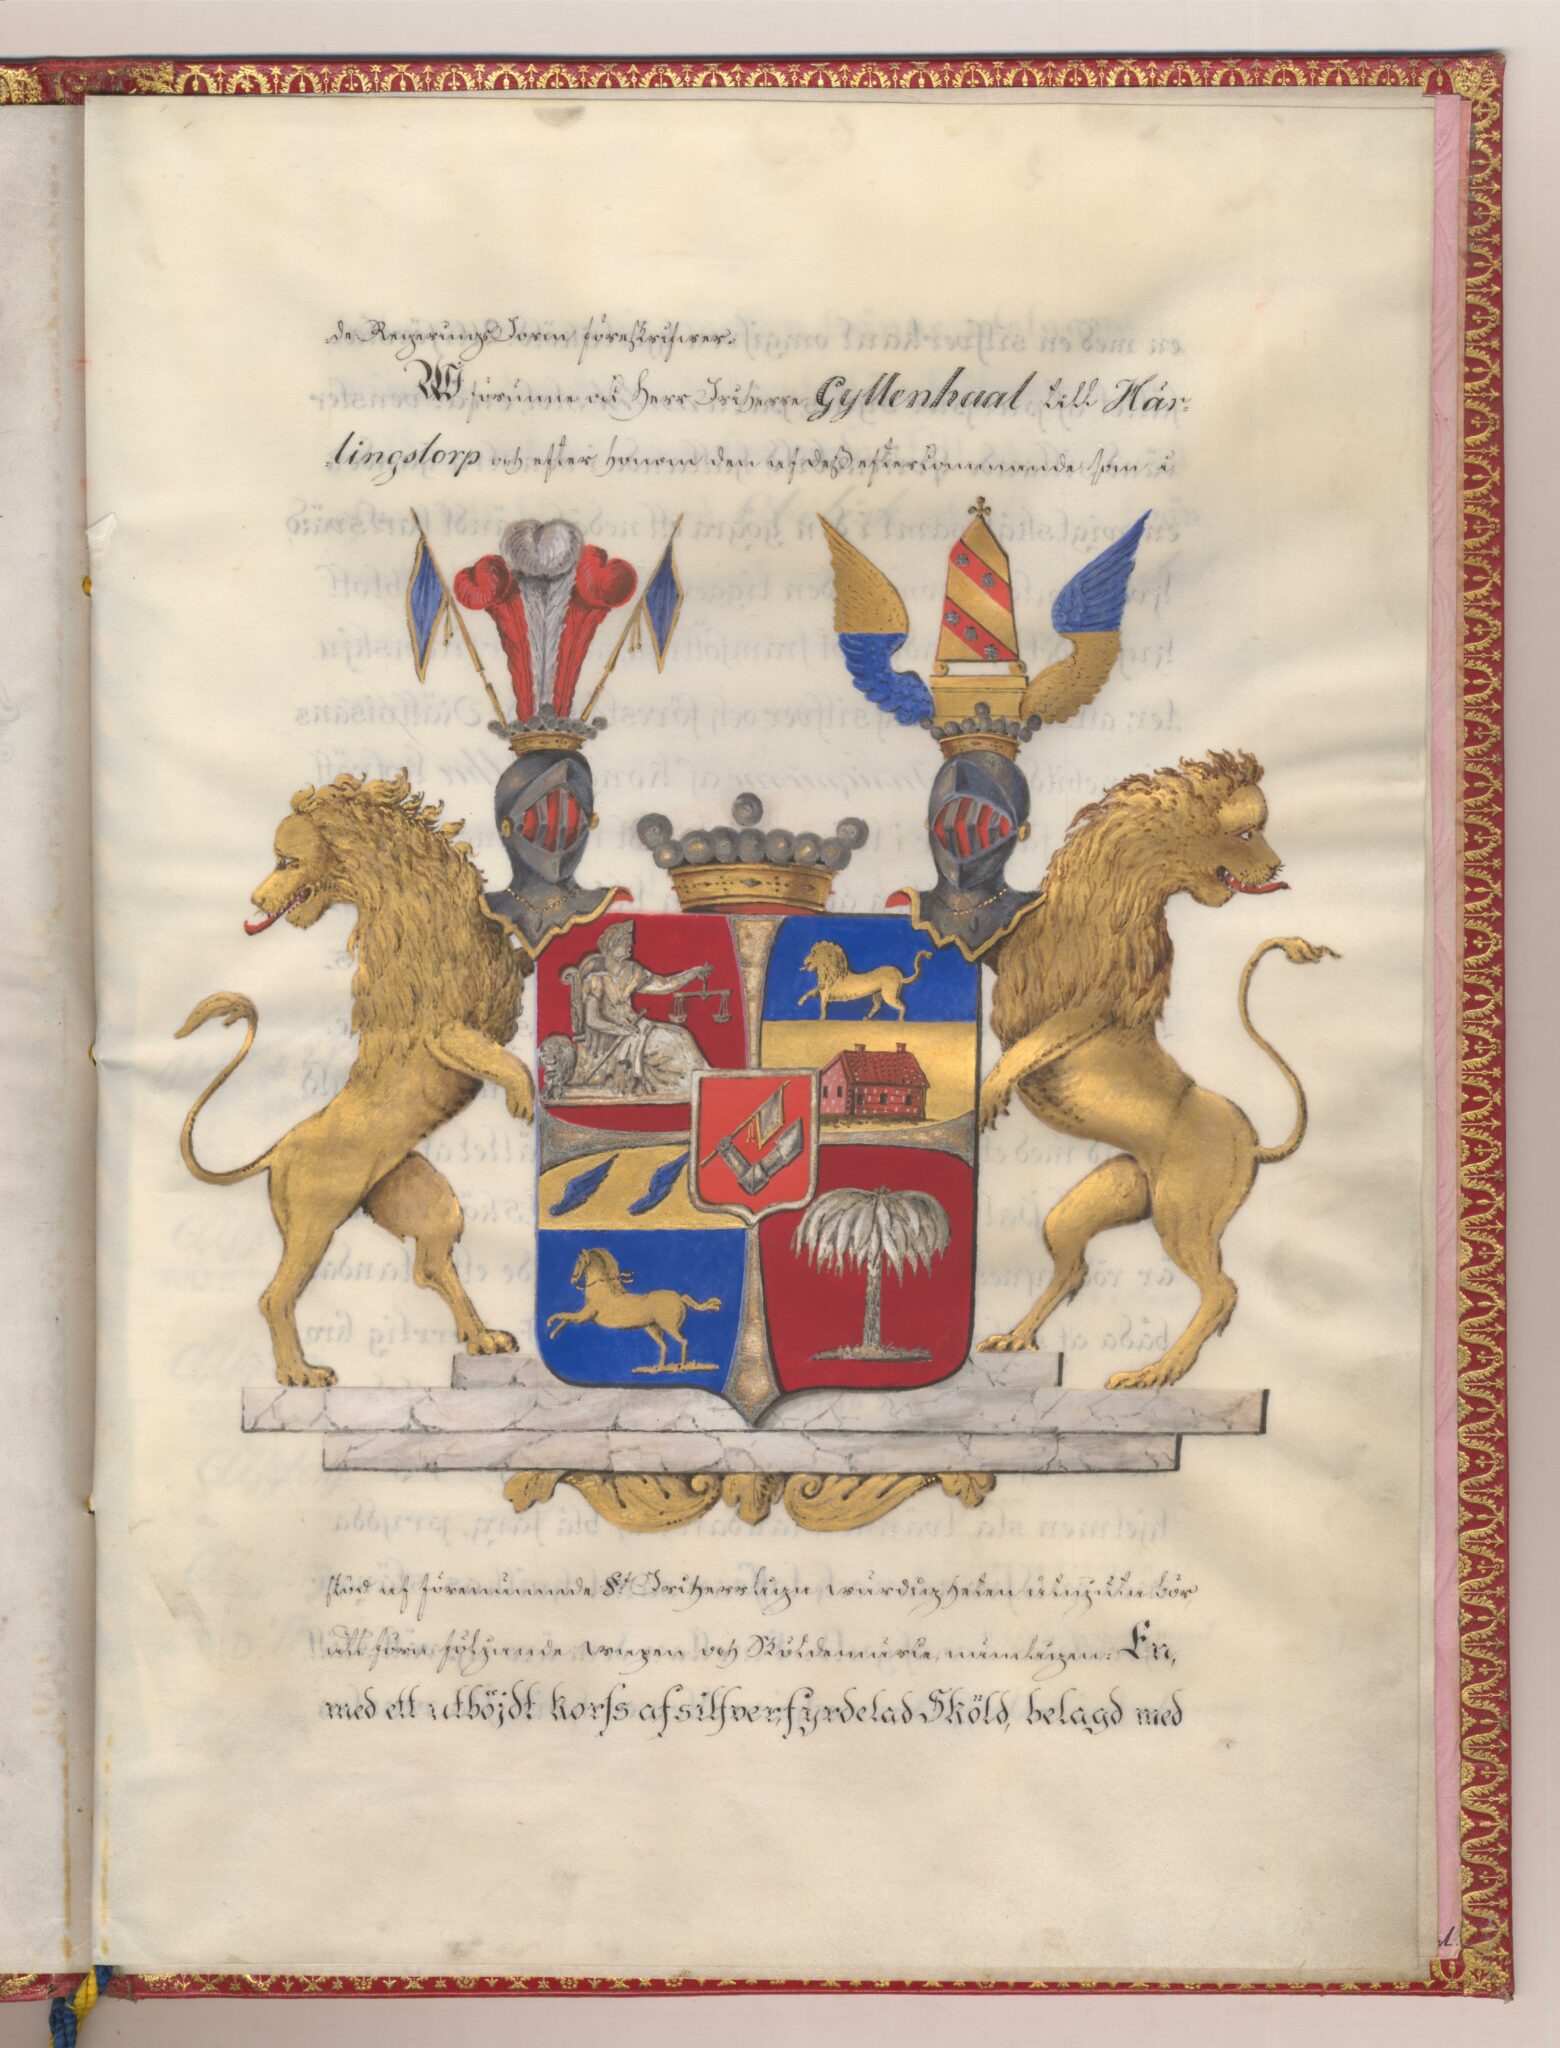 de Regerings Form föreskrifwer.
Wi förunne ock Herr Friherre Gyllenhaal till Här-
lingstorp och efter honom den af deß efterkommande, som i
stöd af förenämnde §t Friherrliga wärdigheten åtnjuta bör
att föra följande wapen och Sköldemärke, nämligen: En,
med ett utböjdt korss af silfver, fyrdelad Sköld, belagd med